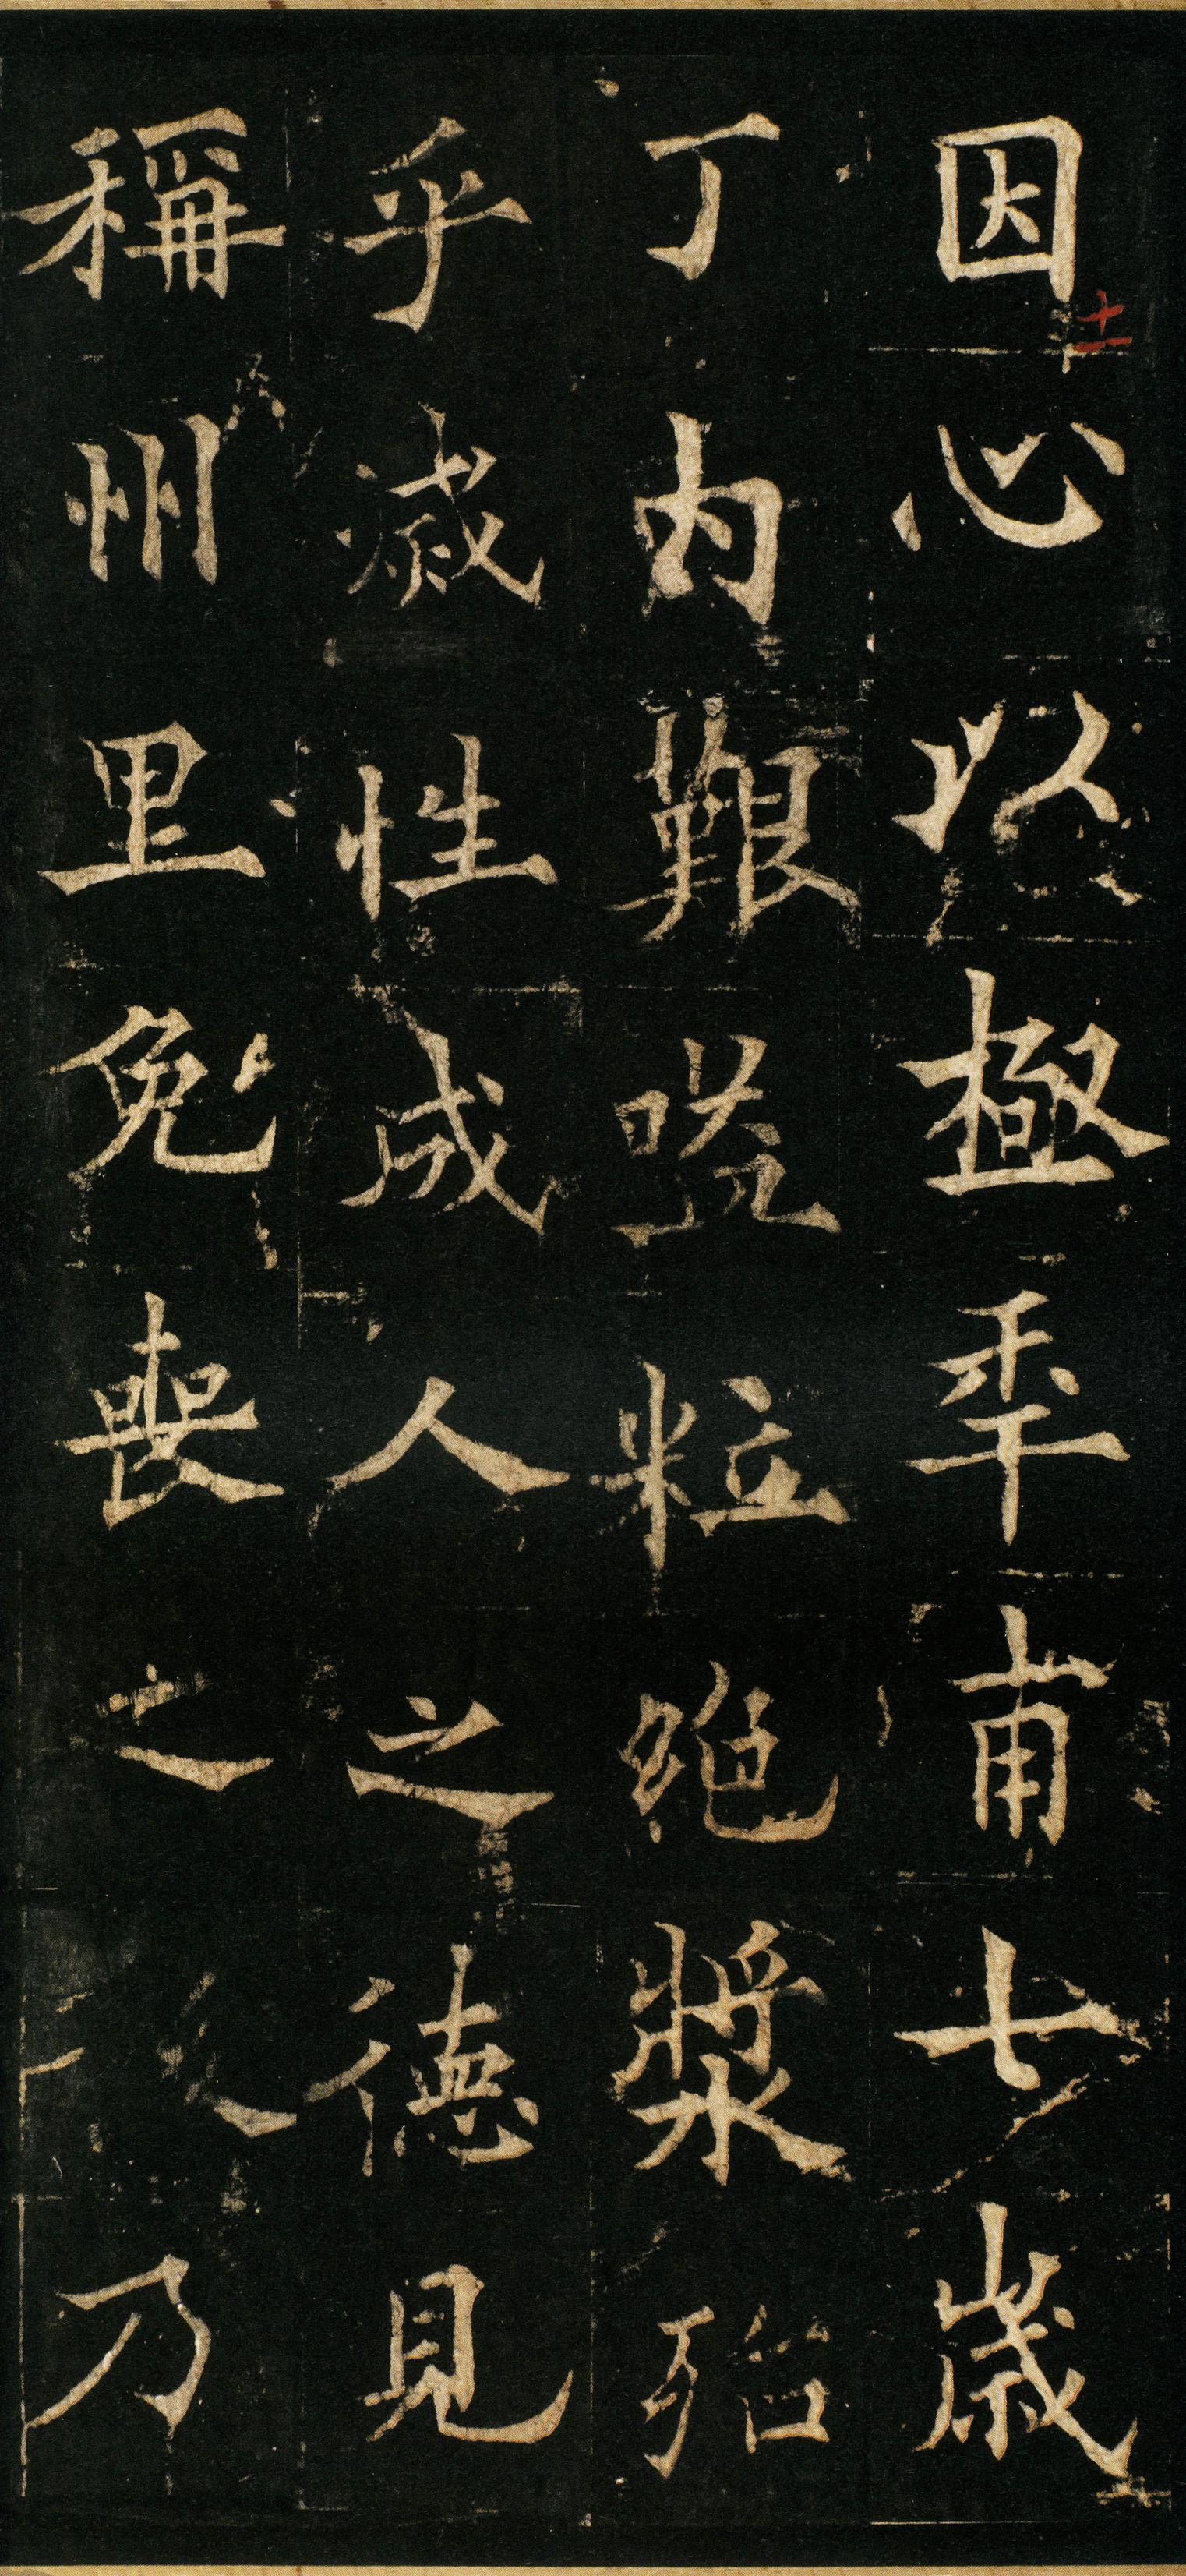 因心以極秊甫七歲
十一
丁內艱嗌粒絕漿殆
乎滅性成人之德見
稱州里免喪之後乃